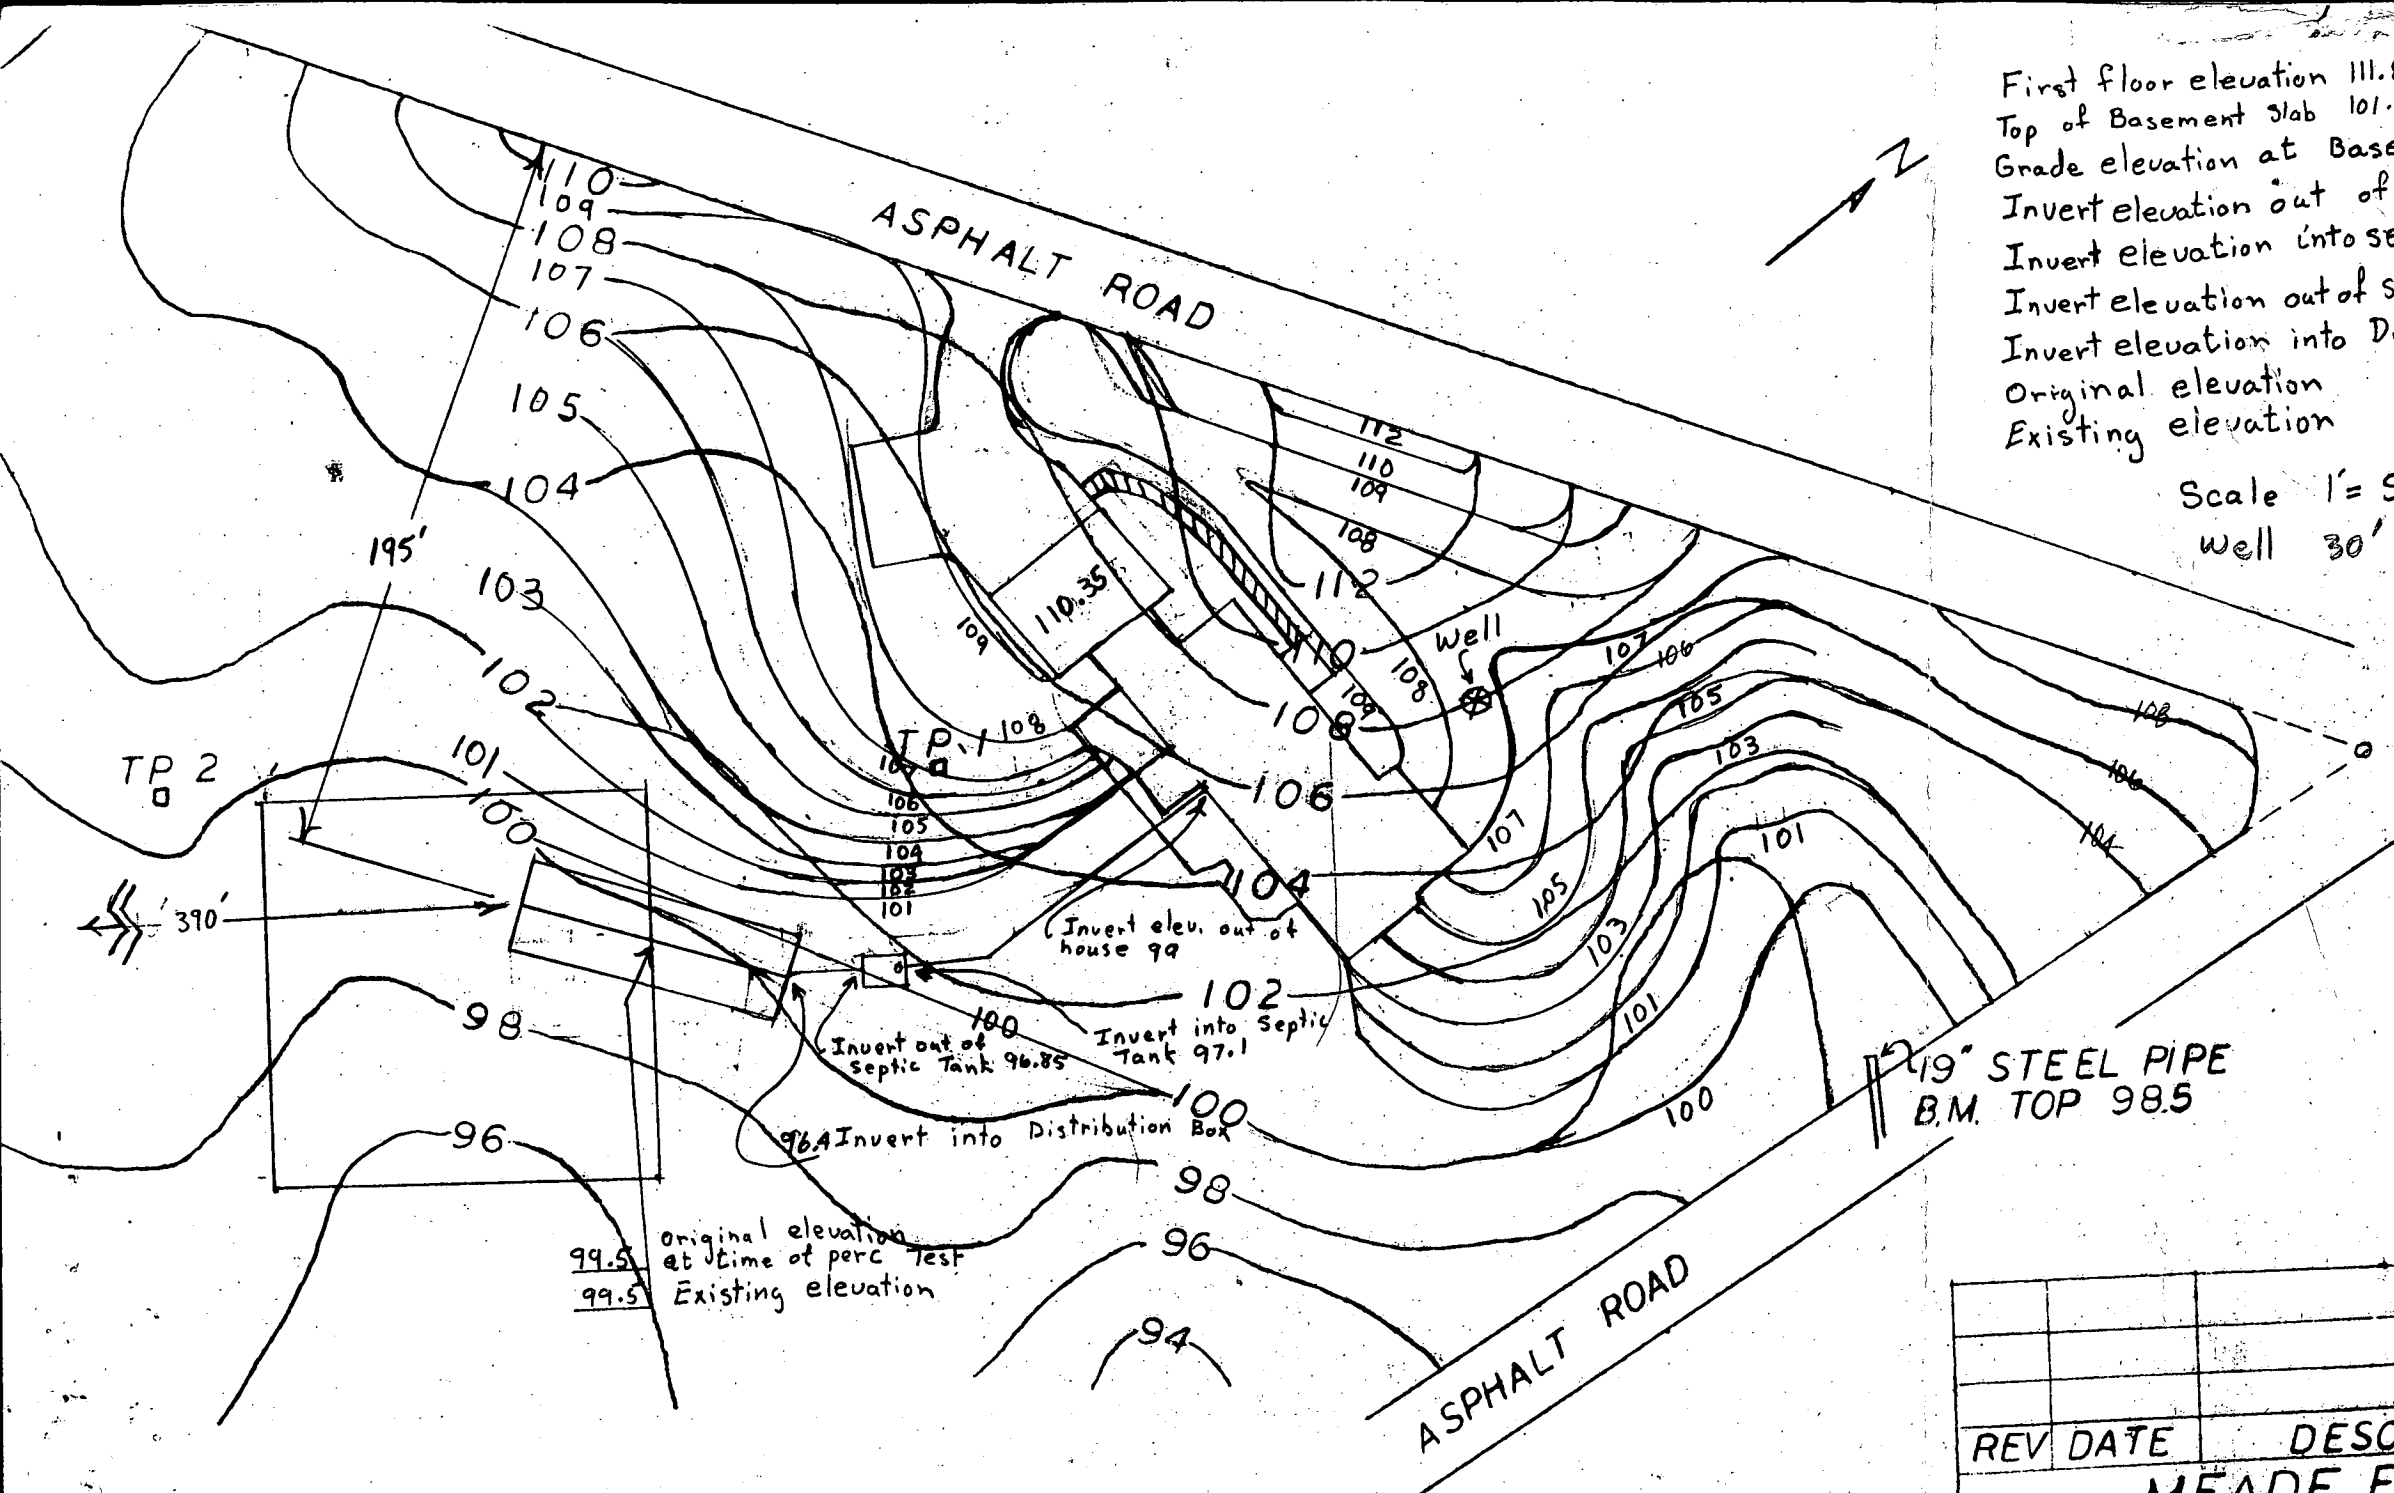 First floor elevation 111.
Top of Basement Slab 101.
Grade elevation at Base
Invert elevation out of
Invert elevation into se
Invert elevation out of S
Invert elevation into D
Original elevation
Existing elevation
Scale 1"=
Well 30'
N
ASPHALT ROAD
110
109
108
107
106
105
104
103
102
101
100
98
96
195'
390'
TP 2
TP. 1
112
110
109
108
112
110
108
106
104
102
100
98
96
94
110.35
109
108
107
106
105
104
103
102
101
Well
108
109
107
106
105
103
101
107
105
103
101
100
108
106
104
100
Invert elev. out of
house 99
Invert out of
Septic Tank 96.85
Invert into Septic
Tank 97.1
96.4 Invert into Distribution Box
original elevation
99.5 at time of perc Test
99.5 Existing elevation
19" STEEL PIPE
B.M. TOP 98.5
ASPHALT ROAD
REV DATE DESC
MEADE